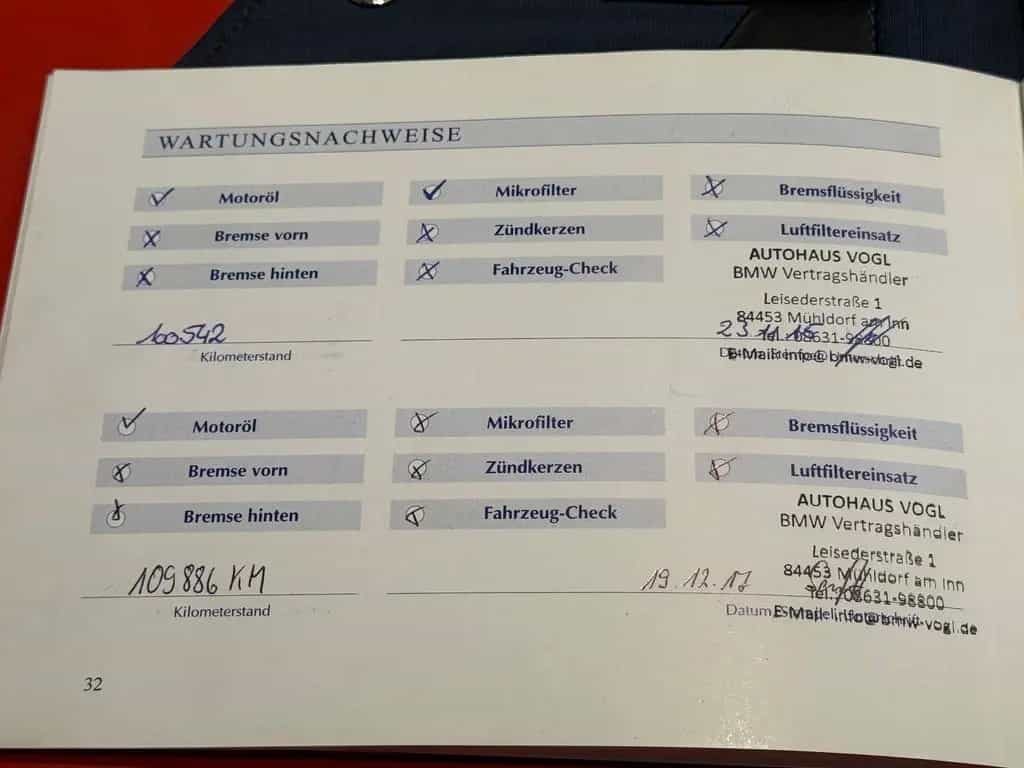 WARTUNGSNACHWEISE
Motoröl Mikrofilter Bremsflüssigkeit
Bremse vorn Zündkerzen Luftfiltereinsatz
Bremse hinten Fahrzeug-Check
AUTOHAUS VOGL
BMW Vertragshändler
Leisederstraße 1
84453 Mühldorf am Inn
Tel.: 08631-98800
E-Mail: info@bmw-vogl.de
100542 23.11.15
Kilometerstand
Motoröl Mikrofilter Bremsflüssigkeit
Bremse vorn Zündkerzen Luftfiltereinsatz
Bremse hinten Fahrzeug-Check
AUTOHAUS VOGL
BMW Vertragshändler
Leisederstraße 1
84453 Mühldorf am Inn
Tel.: 08631-98800
E-Mail: info@bmw-vogl.de
109886 KM 19.12.17
Kilometerstand Datum
32